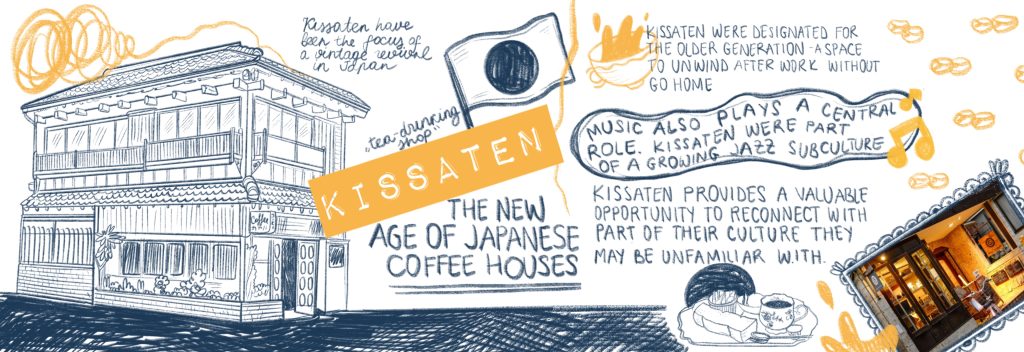 Kissaten have
been the focus of
a vintage revival
in Japan
"tea-drinking
shop"
KISSATEN
THE NEW
AGE OF JAPANESE
COFFEE HOUSES
Coffee
KISSATEN WERE DESIGNATED FOR
THE OLDER GENERATION - A SPACE
TO UNWIND AFTER WORK WITHOUT
GO HOME
MUSIC ALSO PLAYS A CENTRAL
ROLE. KISSATEN WERE PART
OF A GROWING JAZZ SUBCULTURE
KISSATEN PROVIDES A VALUABLE
OPPORTUNITY TO RECONNECT WITH
PART OF THEIR CULTURE THEY
MAY BE UNFAMILIAR WITH.